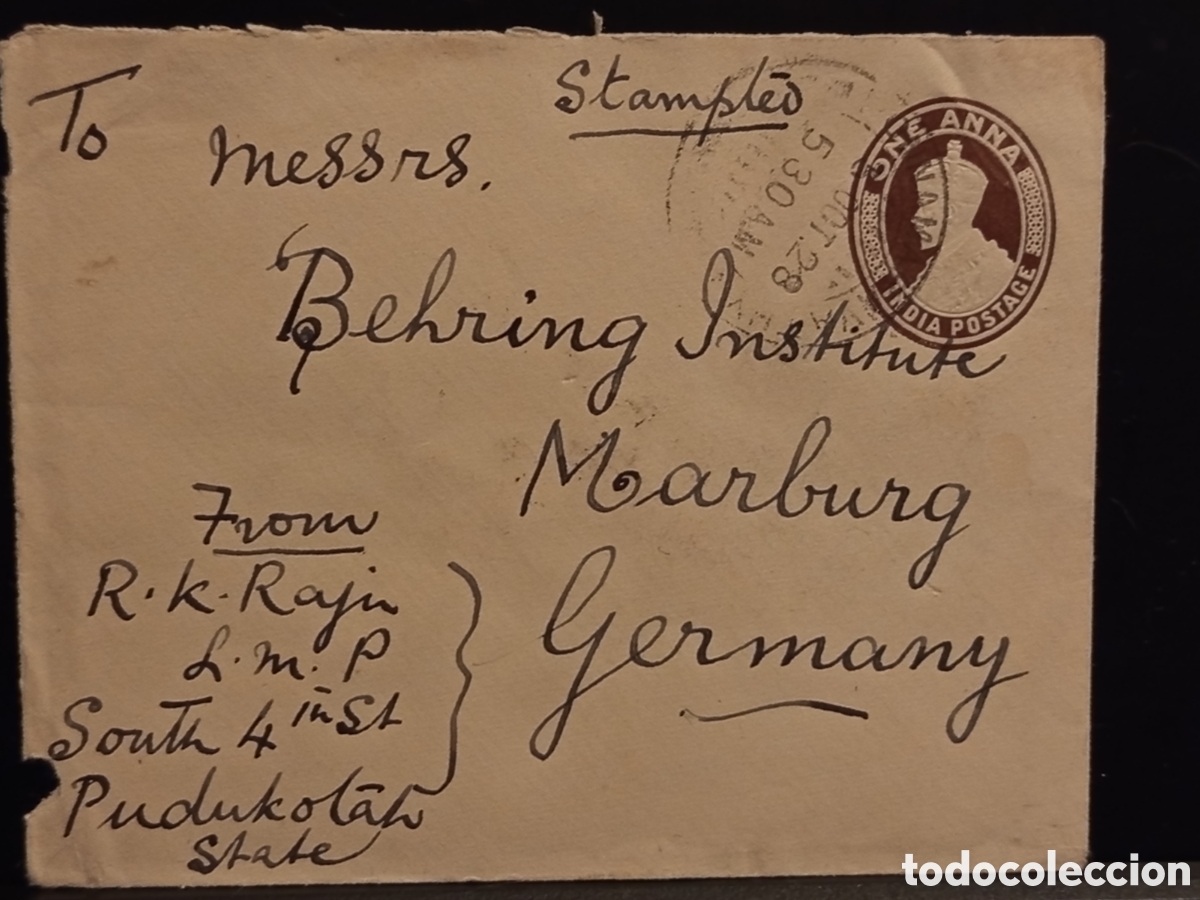 Stampted
To
Messrs.
Behring Institute
Marburg
Germany
ONE ANNA
INDIA POSTAGE
5 30 AM
OCT. 28
From
R. K. Raju
L. M. P
South 4 th St
Pudukotah
State
todocoleccion